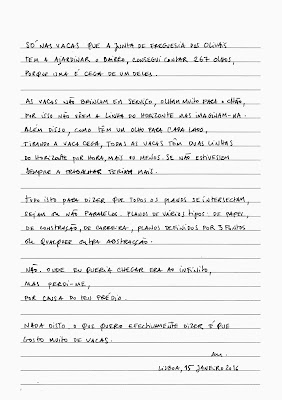 SÓ NAS VACAS QUE A JUNTA DE FREGUESIA DOS OLIVAIS
TEM A AJARDINAR O BAIRRO, CONSEGUI CONTAR 267 OLHOS,
PORQUE UMA É CEGA DE UM DELES.
AS VACAS NÃO BRINCAM EM SERVIÇO, OLHAM MUITO PARA O CHÃO,
POR ISSO NÃO VÊEM A LINHA DO HORIZONTE MAS IMAGINAM-NA.
ALÉM DISSO, COMO TÊM UM OLHO PARA CADA LADO,
TIRANDO A VACA CEGA, TODAS AS VACAS TÊM DUAS LINHAS
DO HORIZONTE POR HORA, MAIS OU MENOS. SE NÃO ESTIVESSEM
SEMPRE A TRABALHAR TERIAM MAIS.
TUDO ISTO PARA DIZER QUE TODOS OS PLANOS SE INTERSECTAM,
SEJAM OU NÃO PARALELOS. PLANOS DE VÁRIOS TIPOS: DE PAPEL,
DE CONSTRUÇÃO, DE CARREIRA, PLANOS DEFINIDOS POR 3 PONTOS
OU QUALQUER OUTRA ABSTRACÇÃO.
NÃO. ONDE EU QUERIA CHEGAR ERA AO INFINITO,
MAS PERDI-ME,
POR CAUSA DO TEU PRÉDIO.
NADA DISTO. O QUE QUERO EFECTIVAMENTE DIZER É QUE
GOSTO MUITO DE VACAS.
LISBOA, 15 JANEIRO 2016